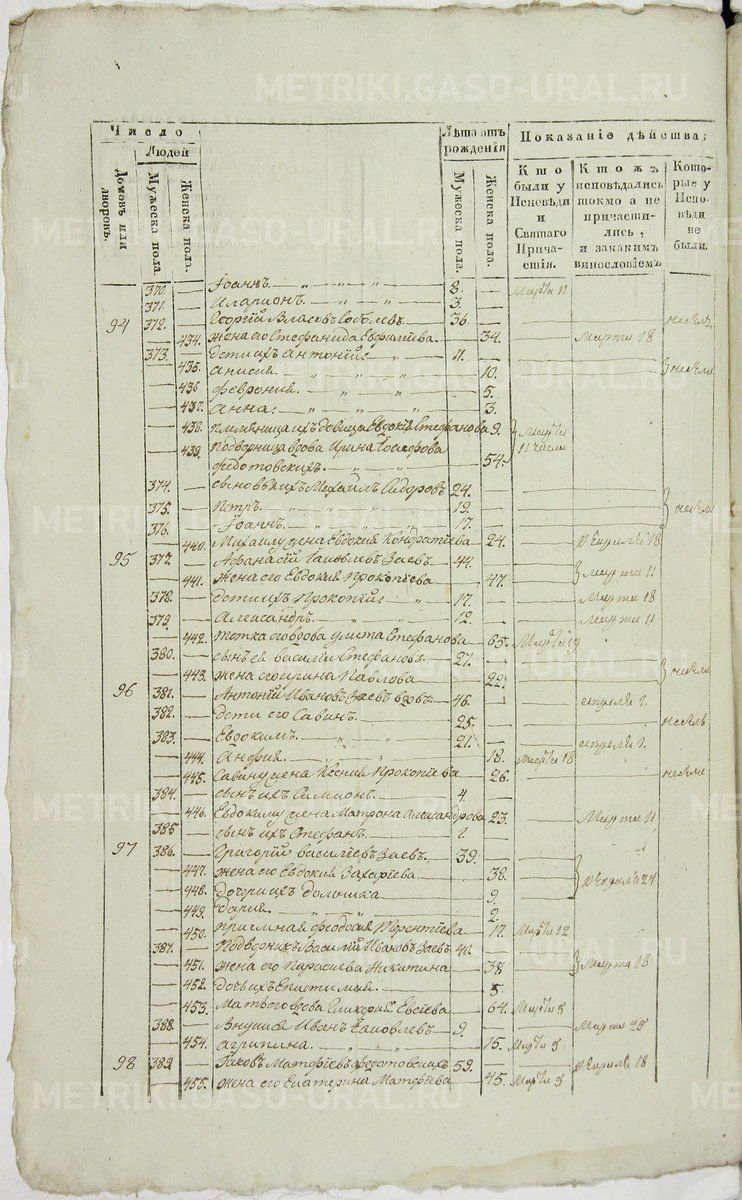 Число
Людей
Домовъ или дворовъ.
Мужеска пола.
Женска пола.
Лѣта отъ рожденія
Мужеска пола.
Женска пола.
Показаніе дѣйства:
Кто были у Исповѣди и Святаго Причастія.
Кто жъ исповѣдались токмо а не причастились, и за какимъ винословіемъ
Которые у Исповѣди не были.
370. Іоаннъ. 8. Марта 11
371. Иларионъ. 3.
94 372. Георгій Власовъ Соболевъ. 36.
434. жена его Стефанида Евфимиева. 34. Марта 18
373. дети ихъ Антоній: 11.
435. Анисия. 10.
436. Феврония. 5.
437. Анна: 3.
438. племянница ихъ девица Евдокия Стефанова 9. Марта
439. подворница вдова Ирина 11 числа
Федотовскихъ. 54.
374. сыновья ихъ Михаилъ Сидоровъ 24.
375. Петръ. 19.
376. Іоаннъ. 17.
440. Михаилу жена Евдокия Кондратиева 24. Апреля 18
95 377. Афанасій Іаковлевъ Заевъ. 44.
441. жена его Евдокия Прокопіева 47. Марта 11
378. дети ихъ Прокопій: 17. Марта 18
379. Александръ. 12. Марта 11
442. тетка его вдова Улита Стефанова 65. Марта 19
380. сынъ ея Василій Стефановъ. 27.
443. жена его Ирина Павлова 22.
96 381. Антоній Ивановъ Заевъ вдовъ. 46. апреля
382. дети его Савинъ. 25.
383. Евдокимъ. 21. апреля
444. Анфия. 18. Марта 18
445. Савину жена Ксения Прокопіева 26.
384. сынъ ихъ Симионъ. 4.
446. Евдокиму жена Матрона Александрова 23. Марта 11
385. сынъ ихъ Стефанъ.
97 386. Григорій Василіевъ Заевъ. 39.
447. жена его Евдокия Захаріева 38. Апреля 24
448. Дочери ихъ Домника 9.
449. Дария. 2.
450. приемная Феодосия Терентіева 17. Марта 12
387. Подворникъ Василій Ивановъ Заевъ 40.
451. жена его Парасиева Никитина 38 Марта 18
452. дочь ихъ Епистимия. 5.
453. Мать его вдова Гликерия Евсіева 64. Марта 5
388. Внучата Иванъ Іаковлевъ 9. Марта 25
454. агрипина. 15. Марта 5
98 389. Іаковъ Матфіевъ Федотовскихъ 59. Апреля 18
455. жена его Екатерина Матфіева 45. Марта 5
METRIKI.GASO-URAL.RU